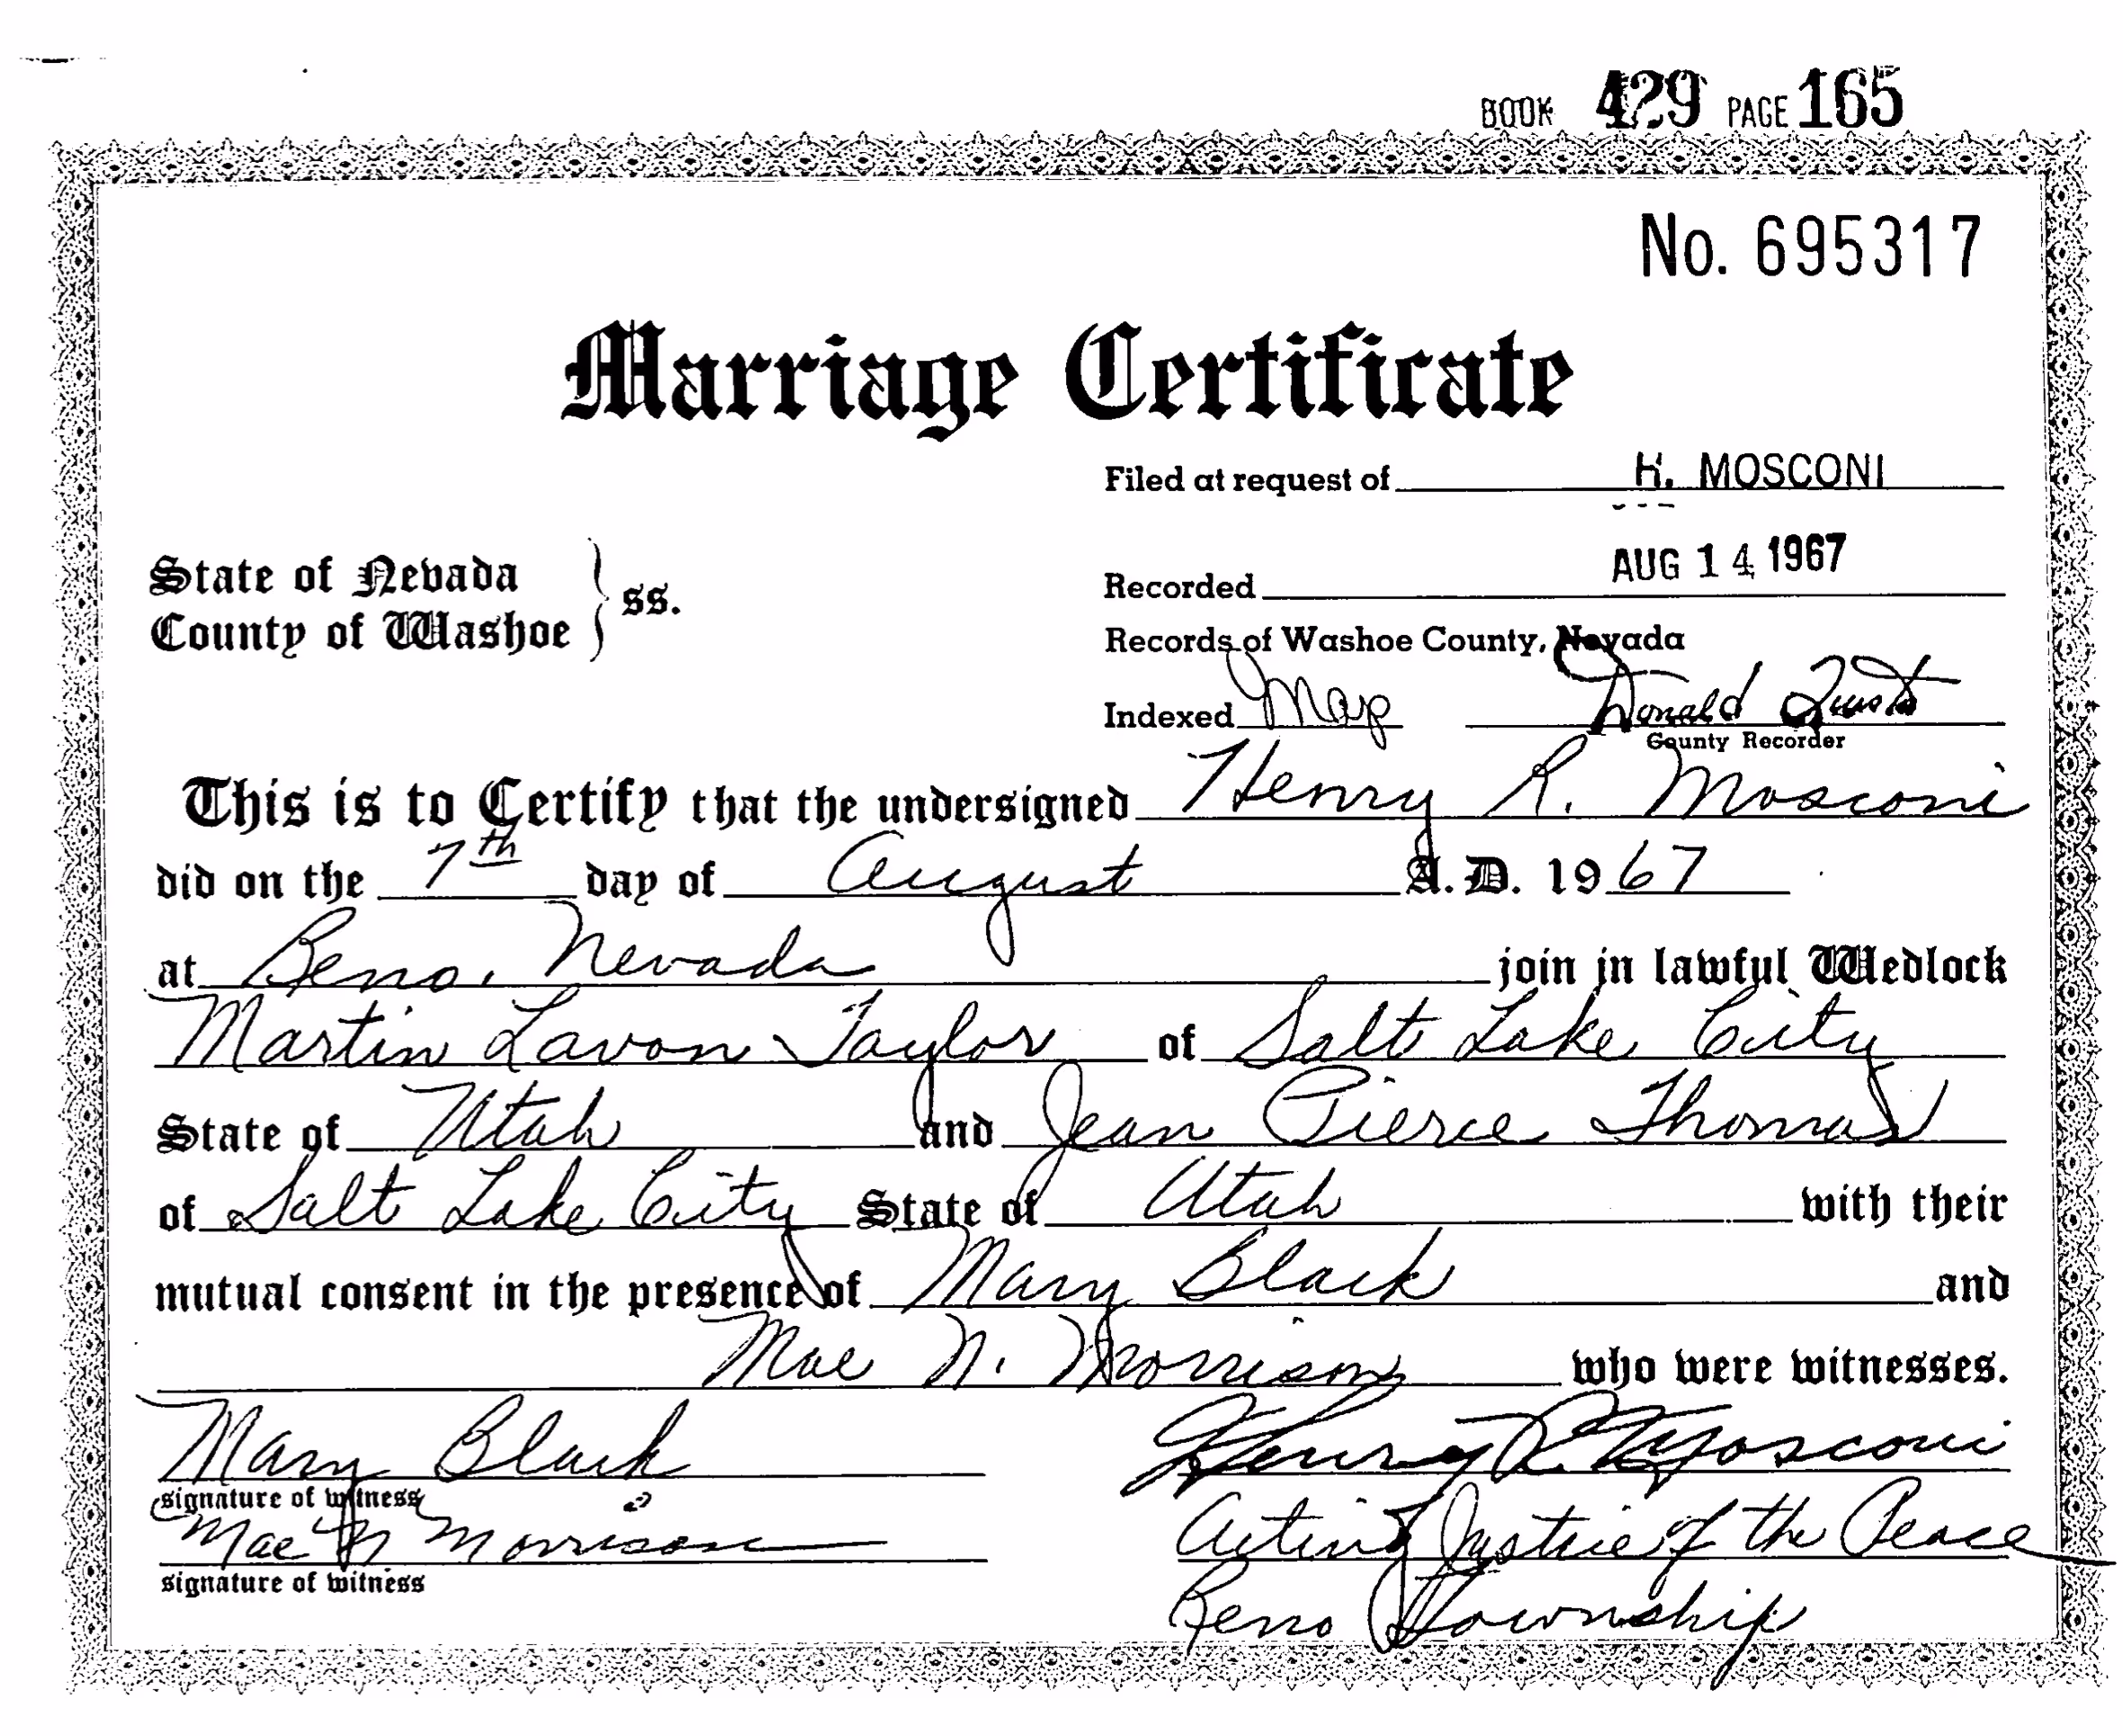 BOOK 429 PAGE 165
No. 695317
Marriage Certificate
Filed at request of H. MOSCONI
State of Nevada
County of Washoe } ss.
Recorded AUG 14 1967
Records of Washoe County, Nevada
Indexed Map Donald Questa
County Recorder
This is to Certify that the undersigned Henry R. Mosconi
did on the 7th day of August A.D. 1967
at Reno, Nevada join in lawful Wedlock
Martin Lavon Taylor of Salt Lake City
State of Utah and Jean Pierce Thomas
of Salt Lake City State of Utah with their
mutual consent in the presence of Mary Black and
Mae N. Morrison who were witnesses.
Mary Black Henry R. Mosconi
signature of witness
Mae N Morrison Acting Justice of the Peace
signature of witness
Reno Township